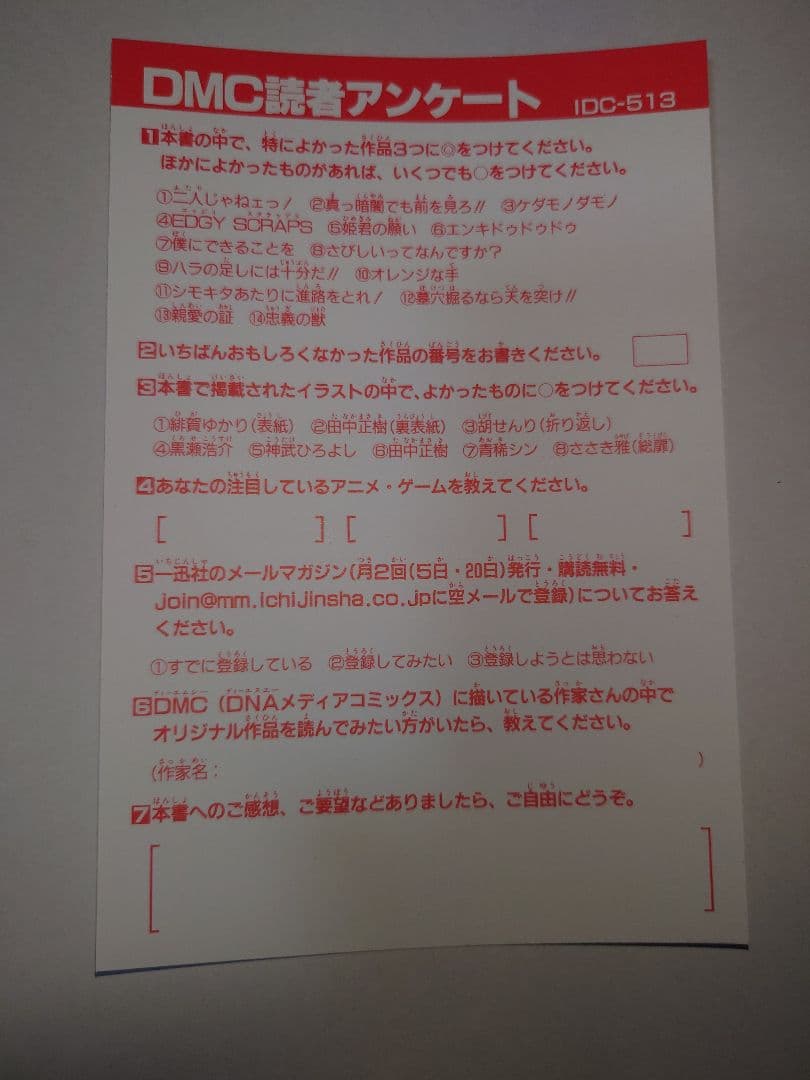 DMC読者アンケート IDC-513
1本書の中で、特によかった作品3つに◎をつけてください。
ほかによかったものがあれば、いくつでも○をつけてください。
①二人じゃねェっ! ②真っ暗闇でも前を見ろ!! ③ケダモノダモノ
④EDGY SCRAPS ⑤姫君の願い ⑥エンキドゥドゥドゥ
⑦僕にできることを ⑧さびしいってなんですか?
⑨ハラの足しには十分だ!! ⑩オレンジな手
⑪シモキタあたりに進路をとれ! ⑫墓穴掘るなら天を突け!!
⑬親愛の証 ⑭忠義の獣
2いちばんおもしろくなかった作品の番号をお書きください。
3本書で掲載されたイラストの中で、よかったものに○をつけてください。
①緋賀ゆかり(表紙) ②田中正樹(裏表紙) ③胡せんり(折り返し)
④黒瀬浩介 ⑤神武ひろよし ⑥田中正樹 ⑦青稀シン ⑧ささき雅(総扉)
4あなたの注目しているアニメ・ゲームを教えてください。
[ ] [ ] [ ]
5一迅社のメールマガジン(月2回(5日・20日)発行・購読無料・
join@mm.ichijinsha.co.jpに空メールで登録)についてお答え
ください。
①すでに登録している ②登録してみたい ③登録しようとは思わない
6DMC(DNAメディアコミックス)に描いている作家さんの中で
オリジナル作品を読んでみたい方がいたら、教えてください。
(作家名: )
7本書へのご感想、ご要望などありましたら、ご自由にどうぞ。
[ ]